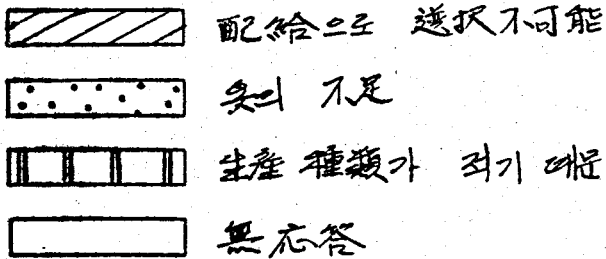 配給으로 選択不可能
옷의 不足
生産 種類가 적기 때문
無応答